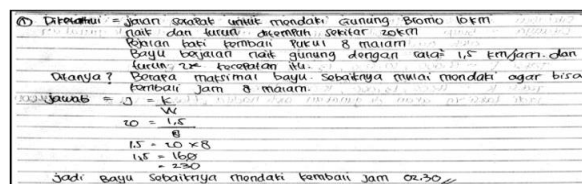 ① Diketahui = jalan setapak untuk mendaki Gunung Bromo 10 km
naik dan turun ditempuh sekitar 20 km
Pejalan kaki kembali Pukul 8 malam
Bayu berjalan naik gunung dengan rata² 1,5 km/jam. dan
turun 2x kecepatan itu.
Ditanya ? Berapa maksimal bayu sebaiknya mulai mendaki agar bisa
kembali jam 8 malam.
Jawab = J = K
W
20 = 1,5
8
1.5 = 20 x 8
1,5 = 160
= 230
Jadi Bayu Sebaiknya mendaki kembali Jam 02.30